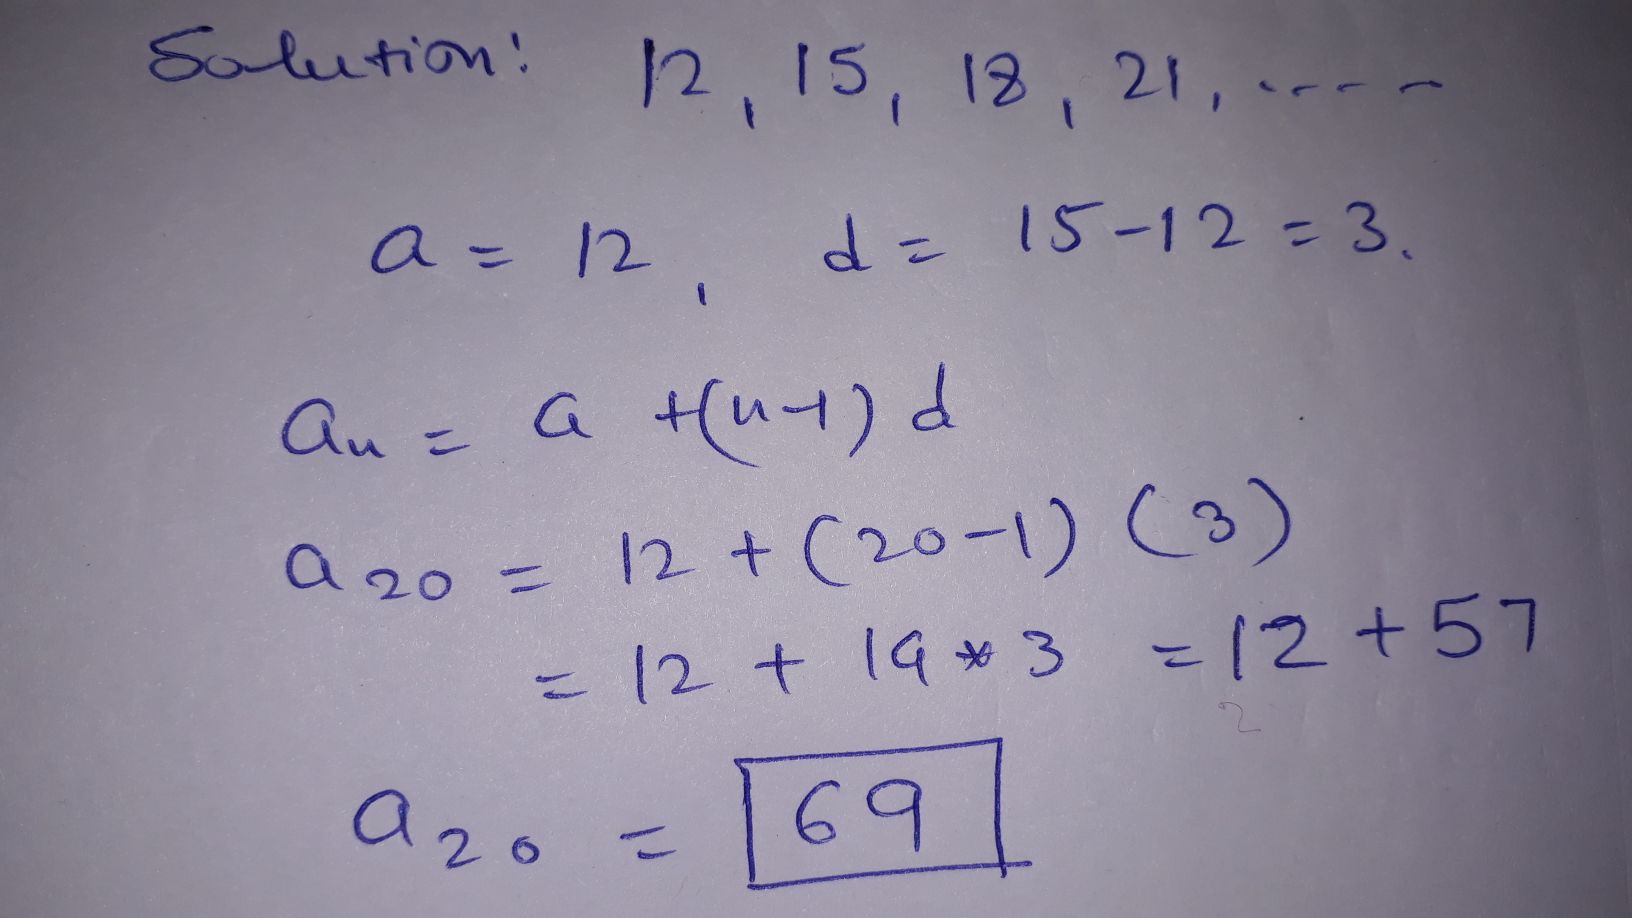 Solution: 12, 15, 18, 21, -----
a = 12, d = 15-12 = 3.
an = a +(n-1) d
a20 = 12 + (20-1) (3)
= 12 + 19*3 = 12 + 57
2
a20 = 69